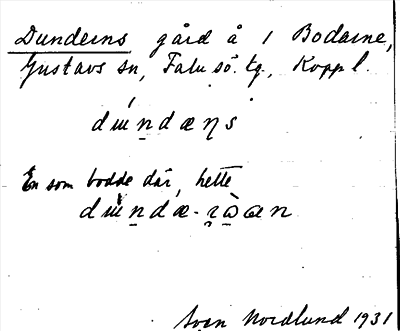 Dunderns gård å 1 Bodarne,
Gustavs sn, Falu sö. tg., Kopp l.
dúndæŋs
En som bodde där, hette
dúndæ-
Sven Nordlund 1931